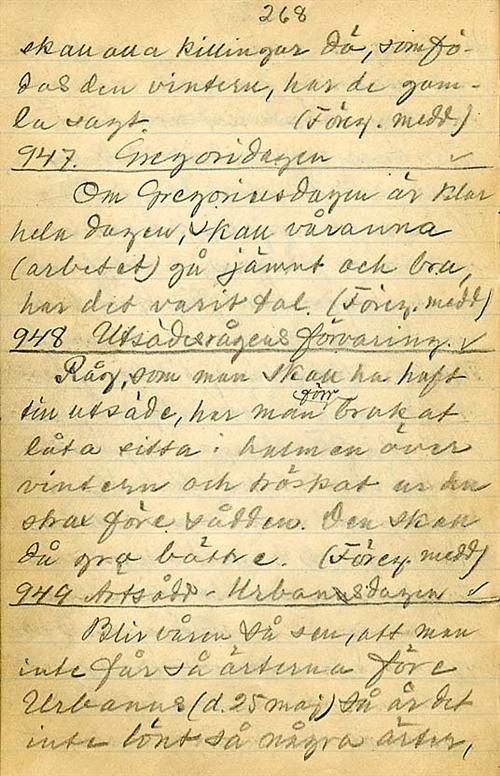 268
skall alla killingar dö, som fö-
das den vintern, har de gam-
la sagt. (Föreg. medd)
947. Gregoridagen ✓
Om Gregoriusdagen är klar
hela dagen, skall våranna
(arbetet) gå jämnt och bra,
har det varit tal. (Föreg. medd)
948 Utsädesrågens förvaring. ✓
Råg, som man skall ha haft
till utsäde, har man förr brukat
låta sitta i halmen över
vintern och tröskat ur den
strax före sådden. Den skall
då gro bättre. (Föreg. medd)
949 Ärtsådd - Urbanusdagen ✓
Blir våren så sen, att man
inte får så ärterna före
Urbanus (d. 25 maj) så är det
inte lönt så några ärter,